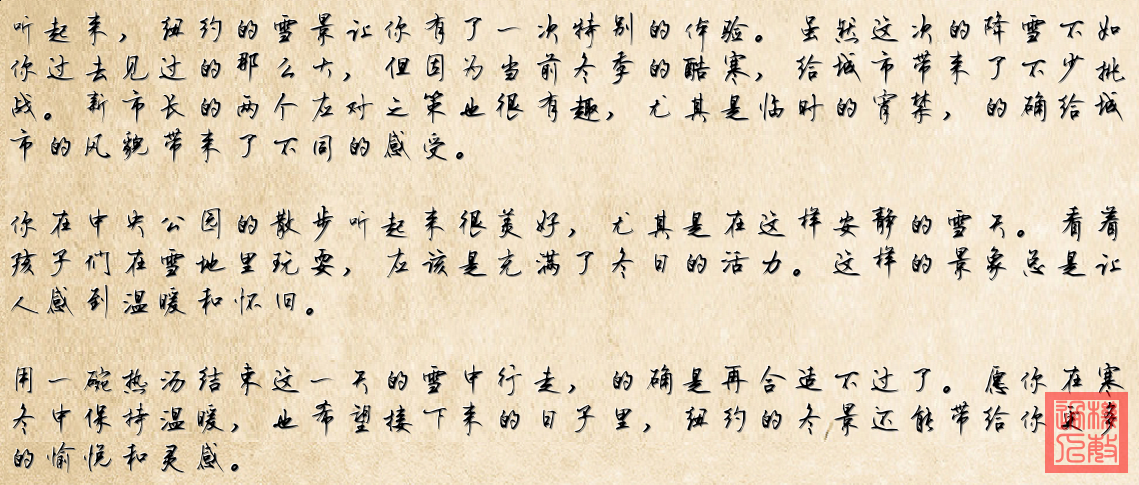 听起来，纽约的雪景让你有了一次特别的体验。虽然这次的降雪不如
你过去见过的那么大，但因为当前冬季的酷寒，给城市带来了不少挑
战。新市长的两个应对之策也很有趣，尤其是临时的宵禁，的确给城
市的风貌带来了不同的感受。
你在中央公园的散步听起来很美好，尤其是在这样安静的雪天。看着
孩子们在雪地里玩耍，应该是充满了冬日的活力。这样的景象总是让
人感到温暖和怀旧。
用一碗热汤结束这一天的雪中行走，的确是再合适不过了。愿你在寒
冬中保持温暖，也希望接下来的日子里，纽约的冬景还能带给你更多
的愉悦和灵感。